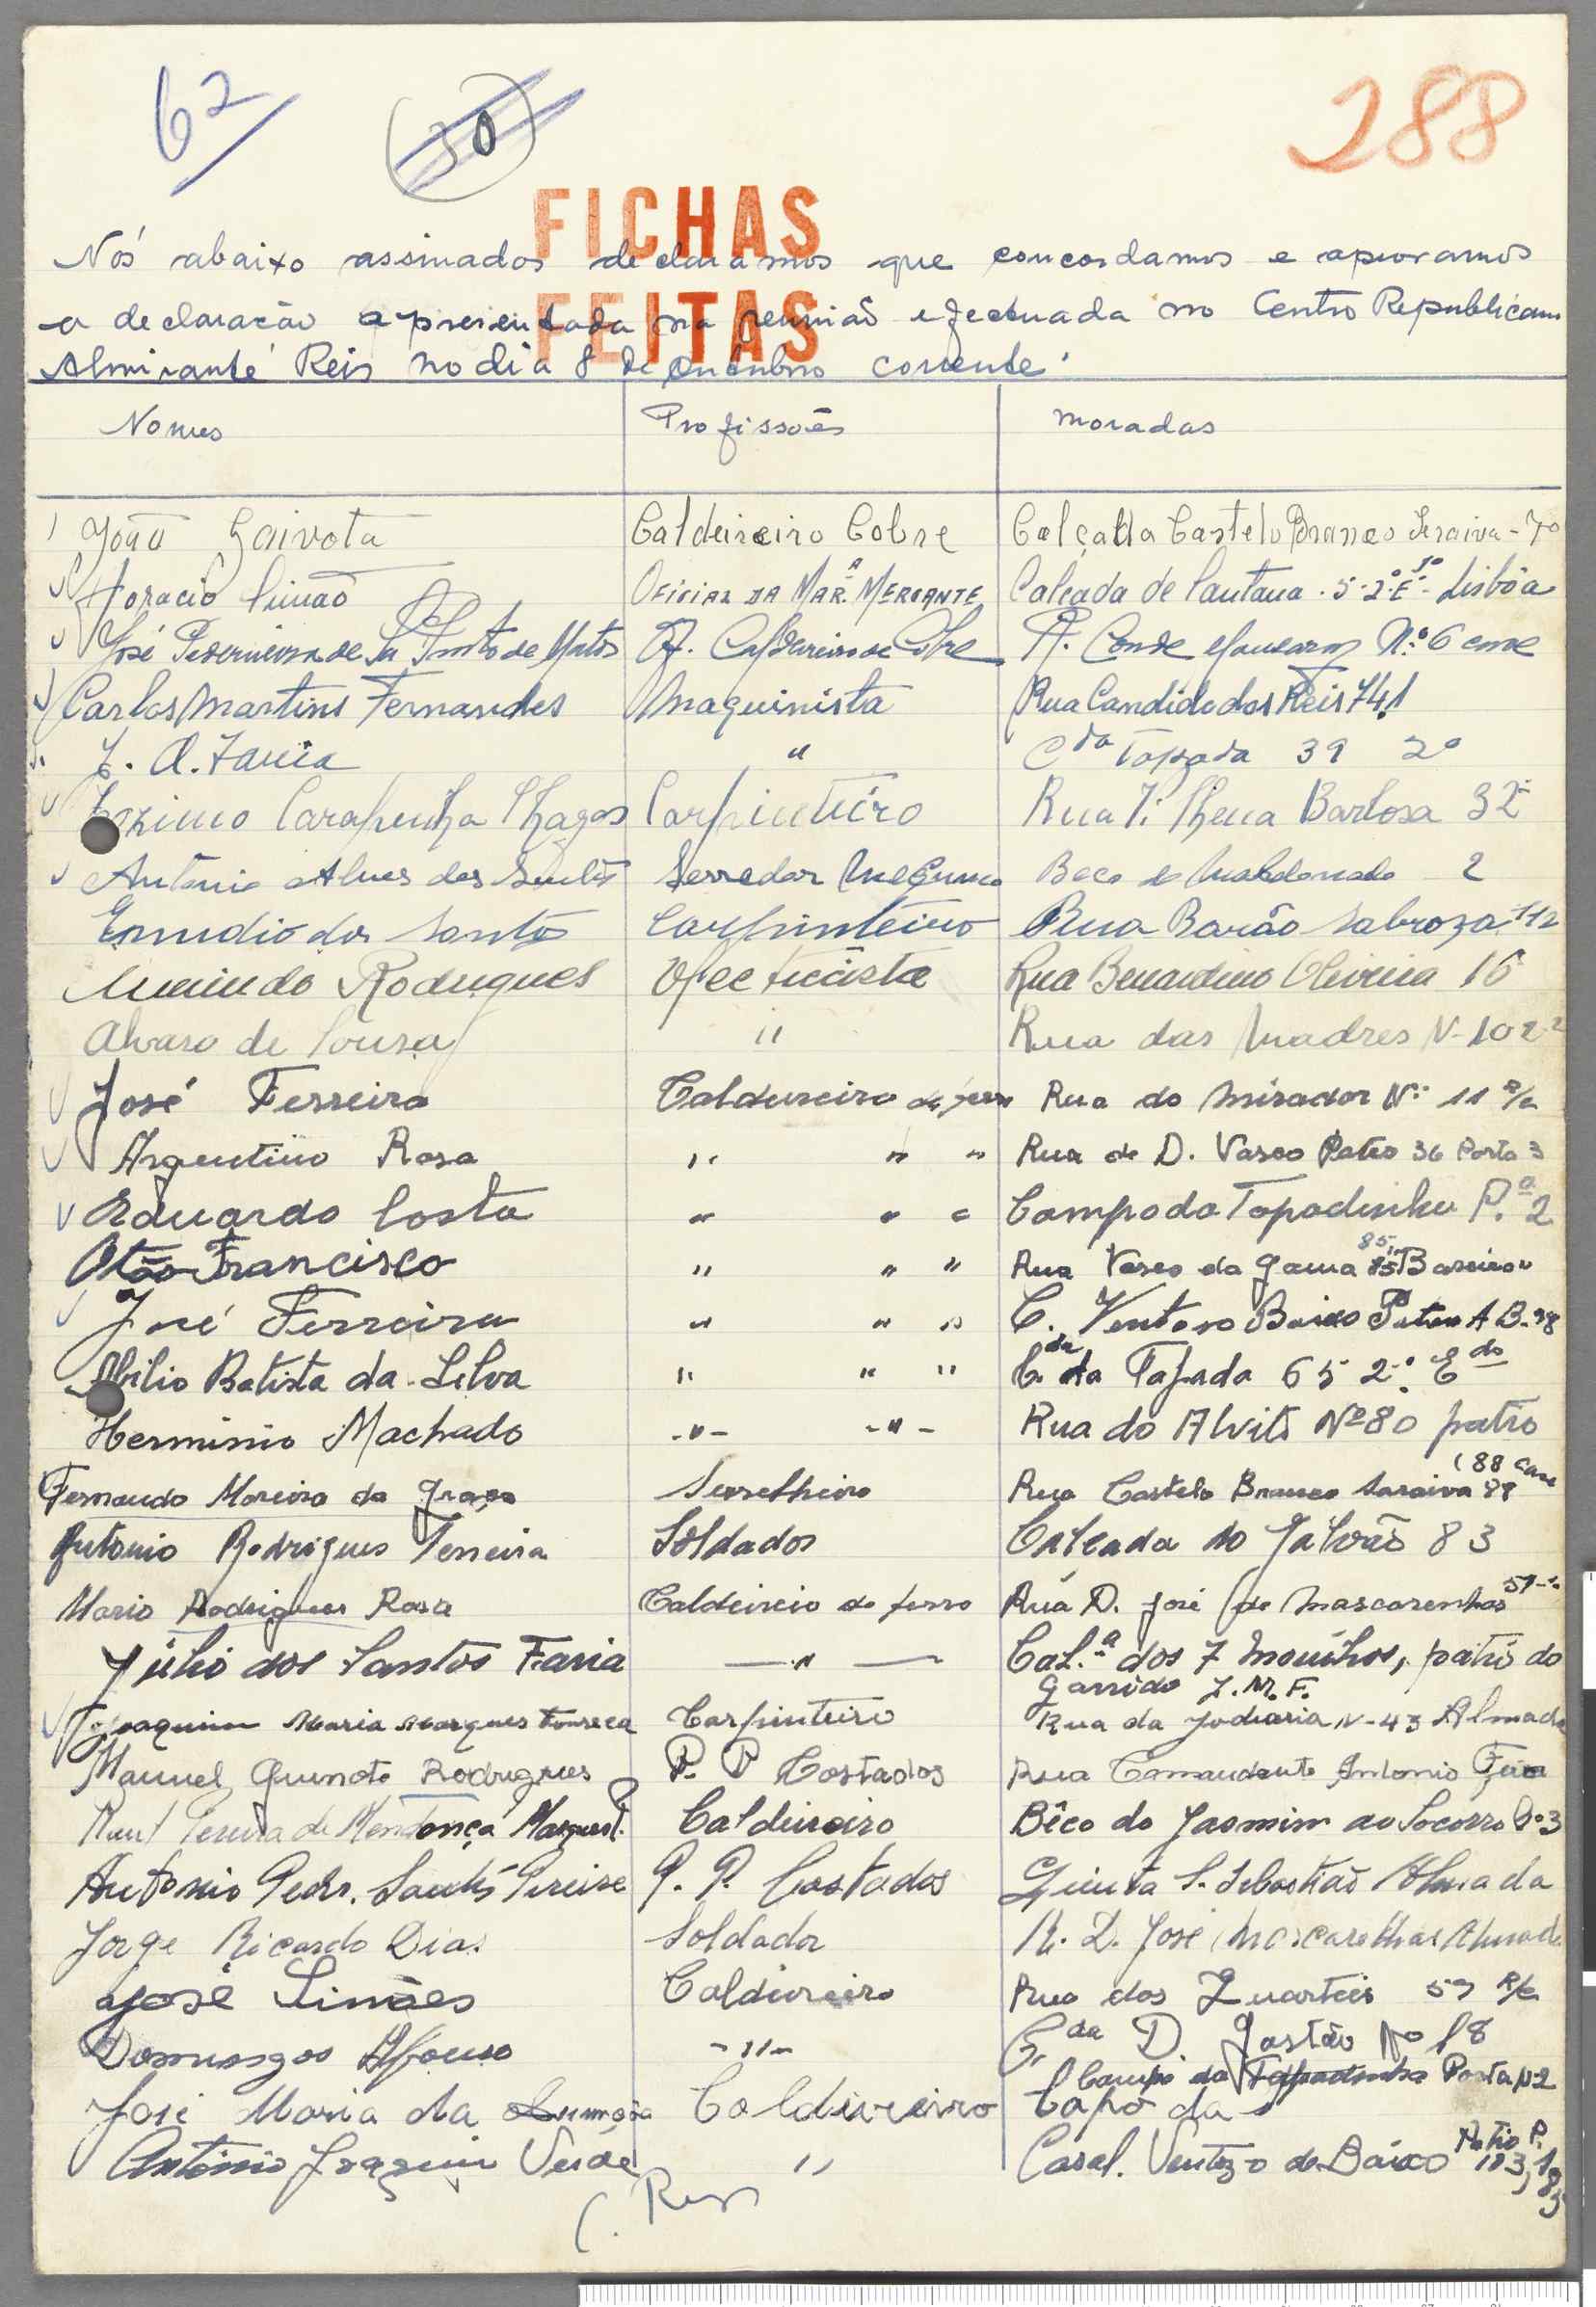 62
30
288
FICHAS
FEITAS
Nós abaixo assinados declaramos que concordamos e aprovamos
a declaração apresentada na reunião efectuada no Centro Republicano
Almirante Reis no dia 8 de Outubro corrente.
Nomes Profissões Moradas
João Gaivota Caldeireiro Cobre Calçada Castelo Branco Seraiva - 7º
Horacio Simão OFICIAL DA MAR.ª MERCANTE Calçada de Santana 5-2º E. Lisbôa
José de Matos Of. Caldeireiro de Cobre R. Conde N.º 6 cave
Carlos Martins Fernandes Maquinista Rua Candido dos Reis 74,1
J. A. Faria " Cda Tapada 39 2º
Carapinha Chagas Carpinteiro Rua Barbosa 32
Antonio Alves dos Serrador Beco 2
Emidio dos Santos Carpinteiro Rua Barão Sabroza 112
Armindo Rodrigues Rua Bernardino Oliveira 16
Alvaro de Sousa " Rua das Madres N-102-2
José Ferreira Caldeireiro de ferro Rua do Mirador Nº 11 R/c
Argentino Rosa " " " Rua de D. Vasco Pateo 36 Porta 3
Eduardo Costa " " " Campo da Tapadinha P.ª 2
Otão Francisco " " " Rua Vasco da Gama 85 Barreiro
José Ferreira " " " C. Ventoso Baixo A B-98
Abilio Batista da Silva " " " Cda da Tapada 65 2.º Edo
Herminio Machado -"- -"- Rua do Alvito Nº 80 patio
Fernando Moreira da Graça Serralheiro Rua Castelo Branco Saraiva 88 cave
Antonio Rodrigues Ferreira Soldador Calçada do Galvão 83
Mario Rodrigues Rosa Caldeireio de ferro Rua D. José de Mascarenhas 51-1º
Júlio dos Santos Faria —"— Cal.ª dos 7 Moínhos, patio do
Garrido J. M. F.
Joaquim Maria Marques Fonseca Carpinteiro Rua da Judiaria N-43 Almada
Manuel Rodrigues P. P Costados Rua Comandante Antonio Feio
Pereira de Mendonça Caldeireiro Bêco do Jasmim ao Socorro 3
Antonio Pedr. Santos Pereira P. P. Costados Quinta S. Sebastião Almada
Jorge Ricardo Dias Soldador R. D. José Mascarelhas Almada
José Simões Caldeireiro Rua dos Quarteis 59 R/c
Domingos Afonso -"- Cda D. Gastão Nº 18
Campo da Tapadinha Porta N 2
José Maria da Caldireiro Tapada
Antonio Joaquim Verde " Casal. Ventozo de Baixo Patio P.